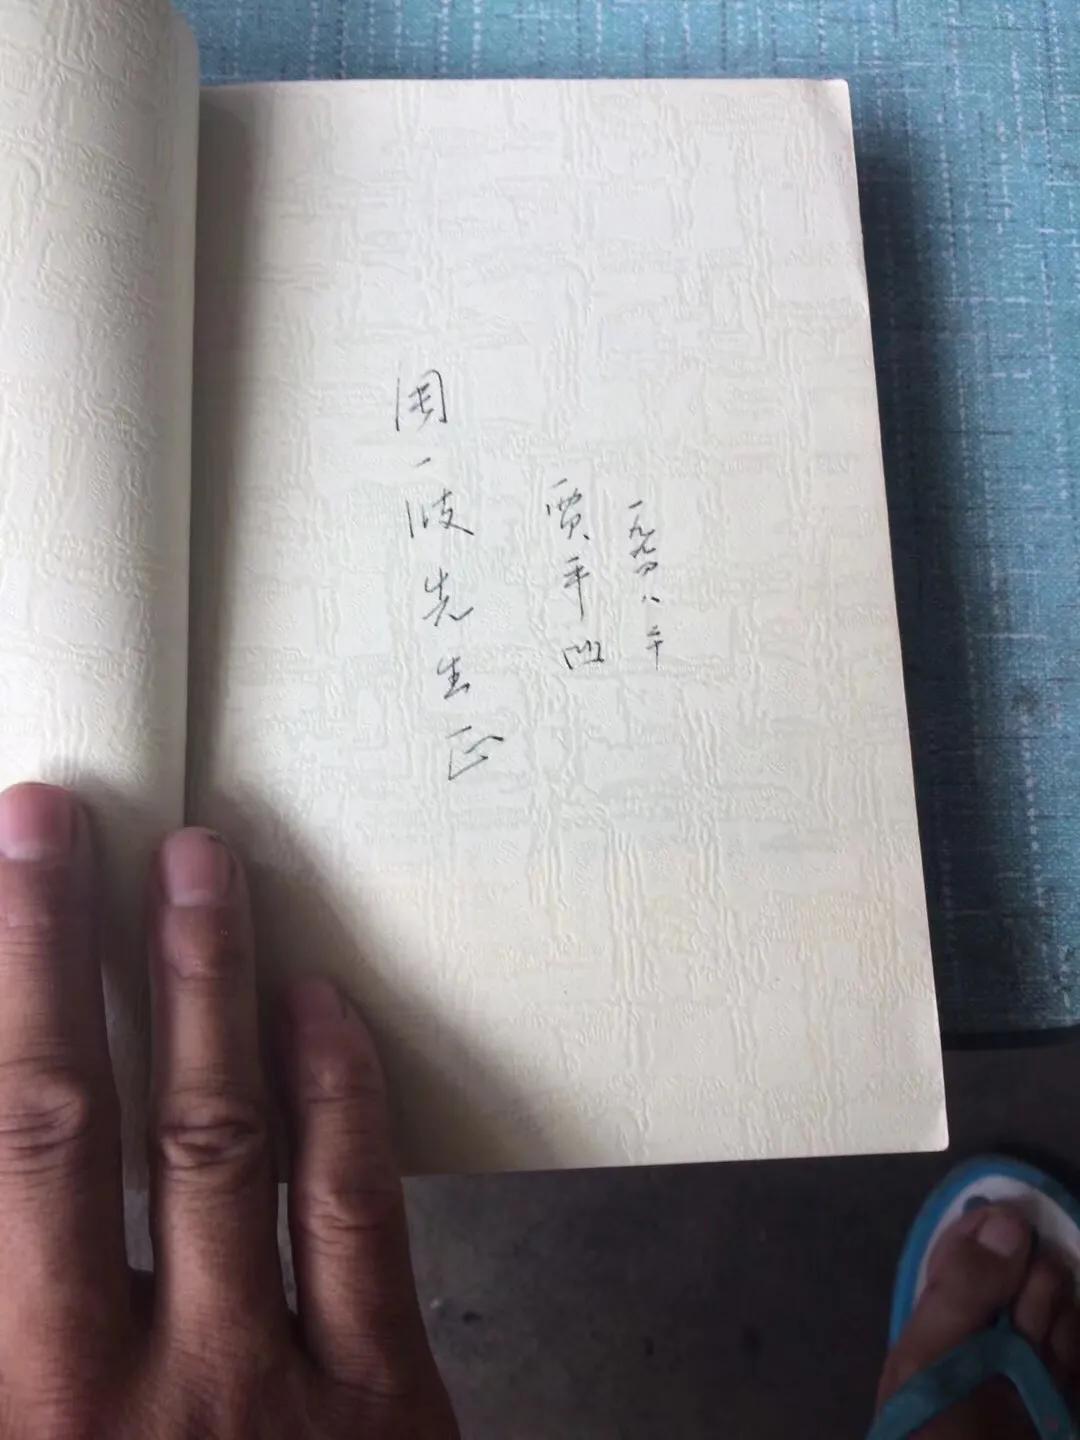 周一波先生正
贾平凹
一九九四、八、二十